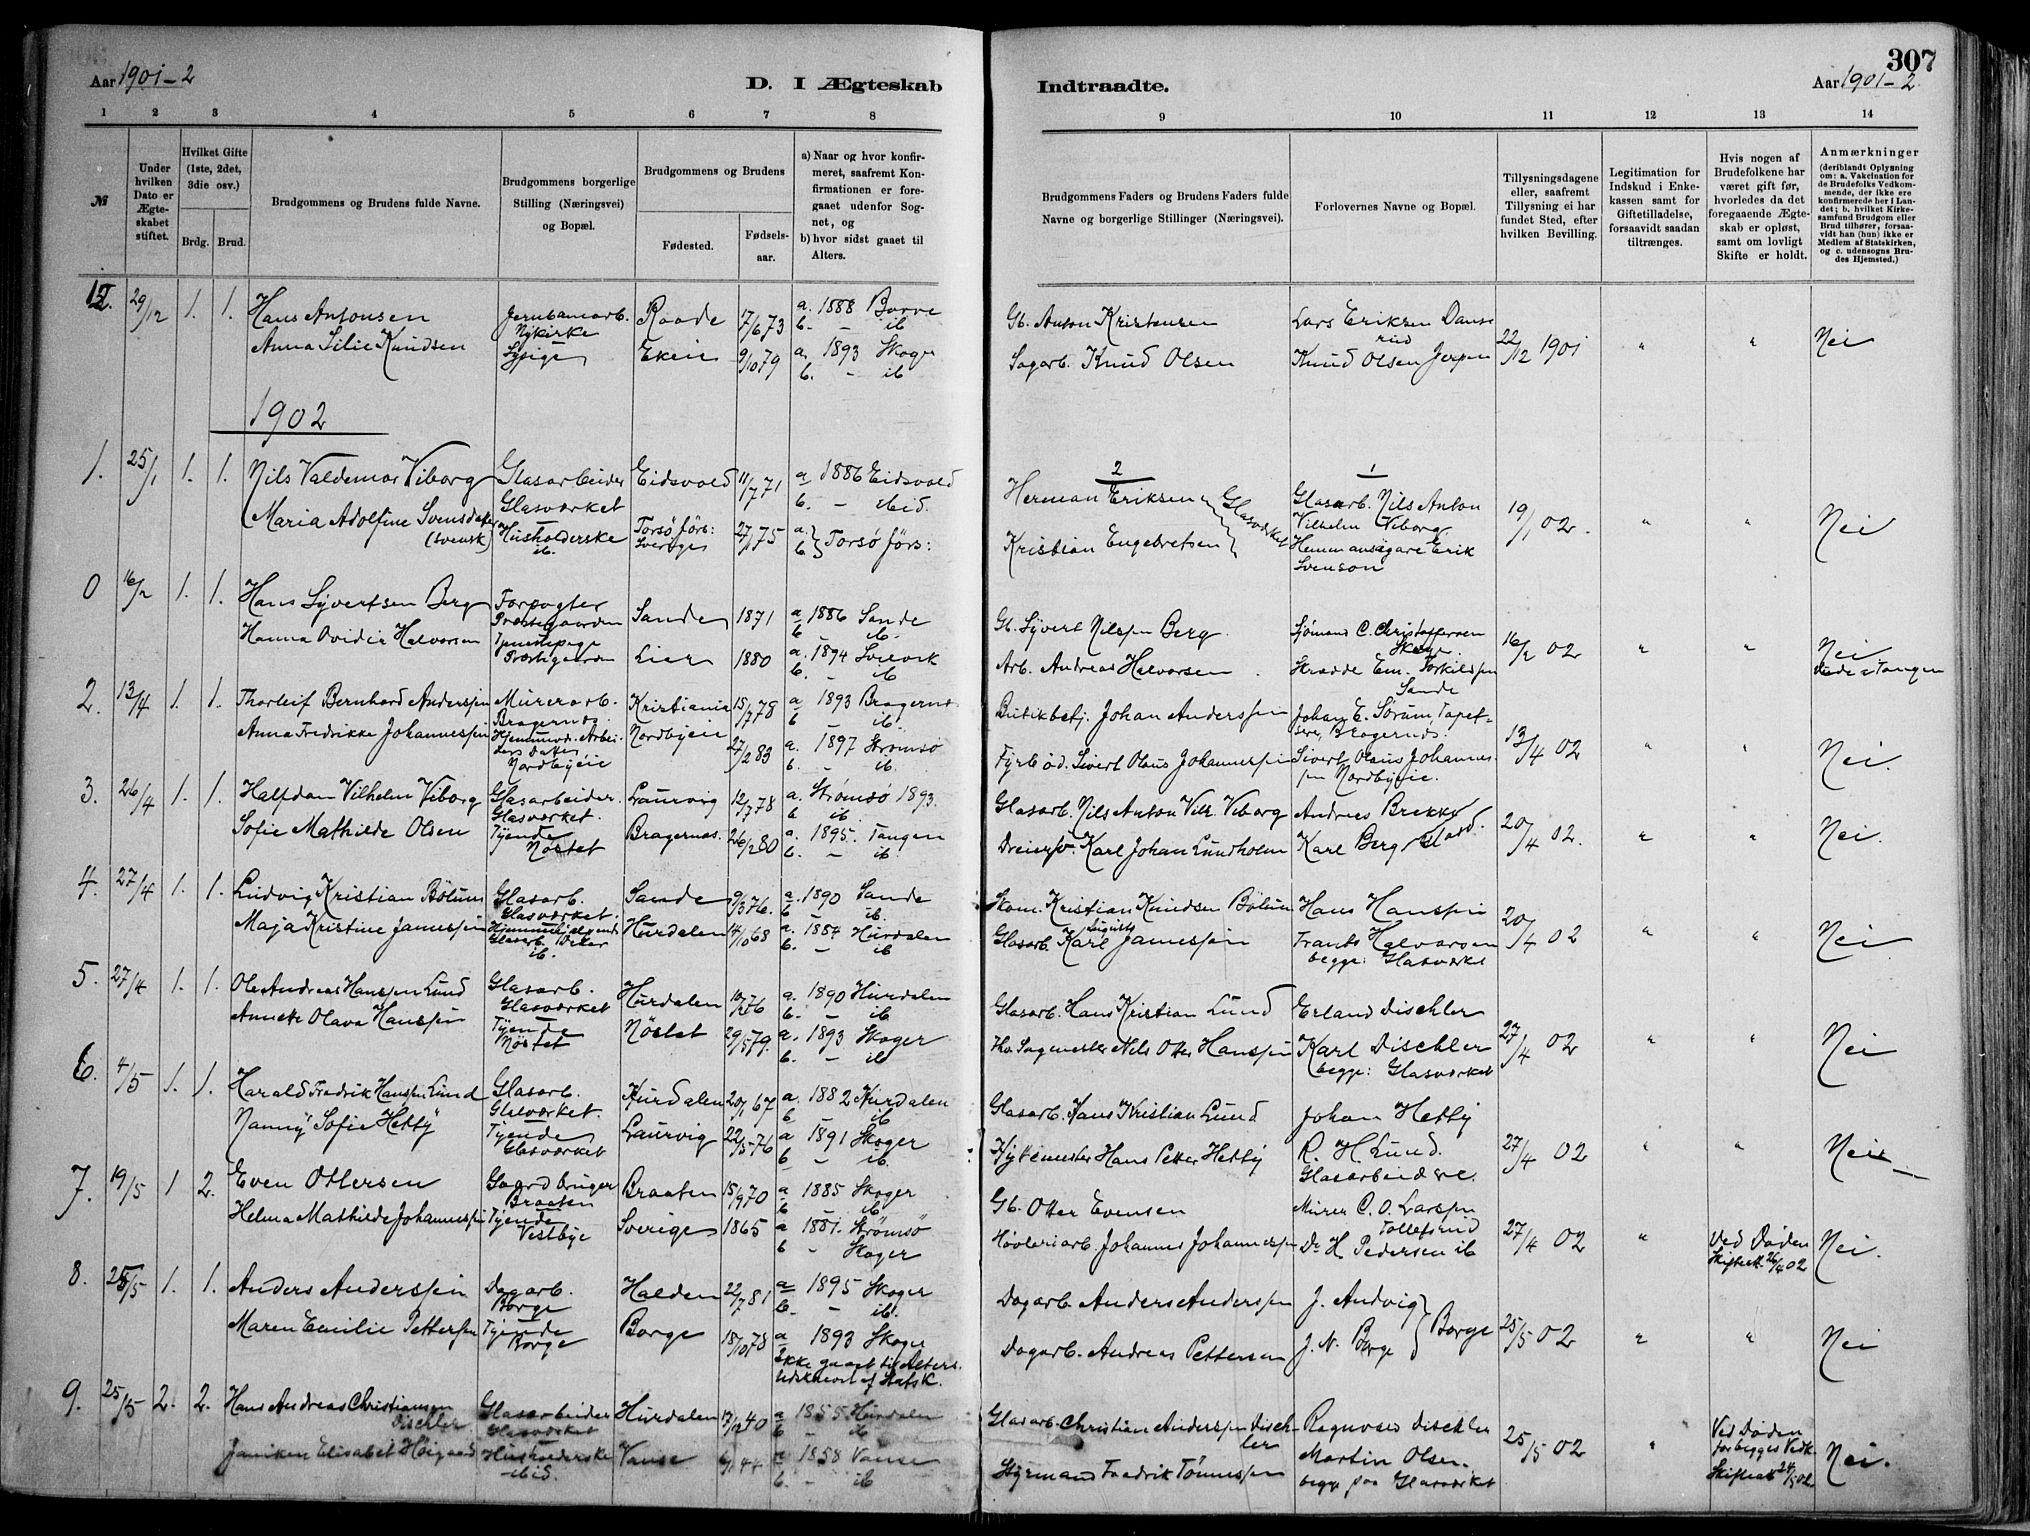 307
Aar 1901-2
D. I Ægteskab
Indtraadte.
Aar 1901-2
1 2 3 4 5 6 7 8
9 10 11 12 13 14
№
Under hvilken Dato er Ægteskabet stiftet.
Hvilket Gifte (1ste, 2det, 3die osv.)
Brdg. Brud.
Brudgommens og Brudens fulde Navne.
Brudgommens borgerlige Stilling (Næringsvei) og Bopæl.
Brudgommens og Brudens
Fødested.
Fødselsaar.
a) Naar og hvor konfirmeret, saafremt Konfirmationen er foregaaet udenfor Sognet, og
b) hvor sidst gaaet til Alters.
Brudgommens Faders og Brudens Faders fulde Navne og borgerlige Stillinger (Næringsvei).
Forlovernes Navne og Bopæl.
Tillysningsdagene eller, saafremt Tillysning ei har fundet Sted, efter hvilken Bevilling.
Legitimation for Indskud i Enkekassen samt for Giftetilladelse, forsaavidt saadan tiltrænges.
Hvis nogen af Brudefolkene har været gift før, hvorledes da det foregaaende Ægteskab er opløst, samt om lovligt Skifte er holdt.
Anmærkninger
(deriblandt Oplysning om: a. Vakcination for de Brudefolks Vedkommende, der ikke ere konfirmerede her i Landet; b. hvilket Kirkesamfund Brudgom eller Brud tilhører, forsaavidt han (hun) ikke er Medlem af Statskirken, og c. udensogns Brudes Hjemsted.)
29/12 1. 1. Hans Antonsen Jernbanearb. Nykirke Raade 17/6 73 a. 1888 Borre b. - ib
Gb. Anton Kristensen Lars Eriksen Danserud 22/12 1901 " " Nei
Anna Lilie Knudsen Sypige Ekeie 9/10 79 a. 1893 Skoger b. - ib
Sagarb. Knud Olsen Knud Olsen
1902
1. 25/1 1. 1. Nils Valdemar Viborg Glasarbeider Glasværket Eidsvold 11/7 71 a 1886 Eidsvold b. - ibid.
2 Herman Eriksen 1 Glasarb. Nils Anton Vilhelm Viborg 19/1 02. " " Nei
Maria Adolfine Svensdatter (svensk) Husholderske ib. Torsø förs: Sverige 27/1 75 a. b. } Torsø förs:
Kristian Engebretsen } Glasværket Hemmansägare Erik Svenson
0 16/2 1. 1. Hans Syvertsen Berg Forpagter Præstegaarden Sande 1871 a 1886 Sande b - ib.
Gb. Syvert Nilssen Berg. Sjömand C. Christoffersen 16/2 02 " " Nei
Hanna Ovidie Halvorsen Tjenestepige Præstegaarden Lier 1880 a. 1894 Svelvik b. ib
Arb. Andreas Halvorsen. Skradde Em. Torkildsen Sande
2. 13/4 1. 1. Thorleif Bernhard Anderssen Murerarb. Bragernes. Kristiania 15/7 78 a 1893 Bragernes b - ib.
Butikbetj. Johan Anderssen Johan E. Sørum, Tapetsere, Bragernes. 13/4 02 " " Nei.
Anna Fredrikke Johannessen Hjemmev. Arbeiders Datter Nordbyeie Nordbyeie 27/2 83 a. 1897 Strømsø b. - ib.
Fyrbød. Sivert Olaus Johannessen Sivert Olaus Johannessen Nordbyeie.
3. 26/4 1. 1. Halfdan Vilhelm Viborg Glasarbeider. Glasværket. Laurvig 12/7 78 a. Strømsø 1893. b ib.
Glasarb. Nils Anton Vilh. Viborg Andreas Brekke 20/4 02. " " Nei.
Sofie Mathilde Olsen Tjende Nøstet Bragernes. 26/2 80 a. 1895. Tangen b. - ib.
Karl Johan Lundholm Karl Berg
4. 27/4 1. 1. Ludvig Kristian Bølum Glasarb. Glasværket. Sande 9/3 76. a. 1890 Sande b - ib.
Skom. Kristian Knudsen Bølum Hans Hanssen 20/4 02 " " Nei
Maja Kristine Janessen ib. Hurdalen 14/10 68 a. 1884 Hurdalen b. - ib
Glasarb. Karl August Janessen Frants Halvorsen begge: Glasværket
5. 27/4 1. 1. Ole Andreas Hanssen Lund Glasarb. Glasværket Hurdalen 76 a. 1890 Hurdalen b. - ib
Glasarb. Hans Kristian Lund Erland Dischler 27/4 02 " " Nei
Annette Olava Hanssen Tjende Nøstet Nøstet 29/5 79. a. 1893 Skoger b. - ib
Sagmester Nils Otter Hanssen Karl Dischler begge: Glasværket
6. 4/5 1. 1. Harald Fredrik Hanssen Lund Glasarb. Glasværket. Hurdalen 20/1 67 a. 1882 Hurdalen b ib.
Glasarb. Hans Kristian Lund Johan Hetty 27/4 02 " " Nei
Nanny Sofie Hetty Tjende Glasværket Laurvig 22/5 76 a 1891 Skoger b - ib.
Hyttemester Hans Petter Hetty R. H. Lund. Glasarbeidere.
7. 19/5 1 2. Even Ottersen Gaardbruger Braaten Braaten 15/9 70 a 1885 Skoger b ib.
Gb. Otter Evensen Murer C. O. Larssen Tollefsrud 27/4 02 " Ved Døden Skifteatt. 26/4 02 Nei.
Helma Mathilde Johannessen Tjende Vestbye Sverige 1865 a 1881. Strømsø b - Skoger
Høvleriarb. Johannes Johannessen Do H. Pedersen ib
8. 25/5 1. 1. Anders Anderssen Dagarb. Borge Halden 22/7 81 a 1895 Skoger b. - ib.
Dagarb. Anders Anderssen J. Andvig } Borge 25/5 02 " " Nei
Maren Emilie Petterssen Tjende Borge Borge 18/10 78 a 1893 Skoger b Ikke gaaet til Alters. Udskrevet af Statsk.
Dagarb. Andreas Pettersen J. N. Borge
9. 25/5 2. 2. Hans Andreas Christiansen Dischler Glasarbeider Glasværket Hurdalen 17/12 40 a 1855 Hurdalen b - ib
Glasarb. Christian Anderssen Dischler Ragnvald Dischler 25/5 02 " Ved Døden for begges Vedk. Skifteatt. 24/5 02. Nei.
Janiken Elisabet Høigaard Husholderske ibid. Vanse 6/1 44 a 1858 Vanse b. - ib
Styrmand Fredrik Tønnessen Martin Olsen. begge paa Glasværket